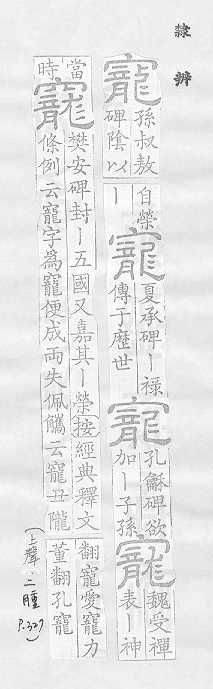 隸辨
寵 孫叔敖
碑陰以
自榮
丨
寵 夏承碑丨祿
傳于歷世
寵 孔龢碑欲
加丨子孫
寵 魏受禪
表丨神
當
時
寵 樊安碑封丨五國又嘉其丨榮按經典釋文
條例云寵字為竉便成兩失佩觿云寵丑隴
翻寵愛竉力
董翻孔竉
(上聲·二腫
P.327)